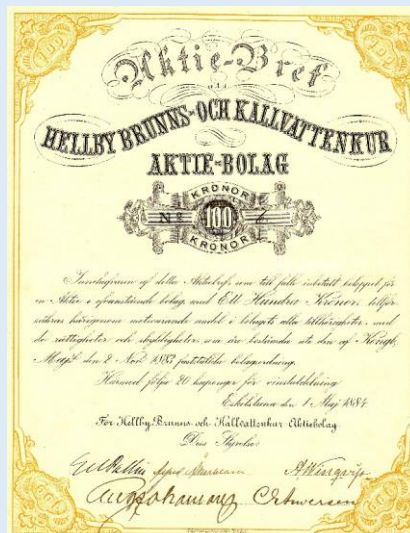 100 100
Aktie-Bref
uti
HELLBY BRUNNS- OCH KALLVATTENKUR
AKTIE-BOLAG
KRONOR
No 100 6
KRONOR
Innehafvaren af detta Aktiebref, som till fullo inbetalt beloppet för
en Aktie i ofvanstående bolag med Ett Hundra Kronor, tillför-
säkras härigenom motsvarande andel i bolagets alla tillhörigheter, med
de rättigheter och skyldigheter som äro bestämda uti den af Kongl.
Majt den 2 Nov. 1883 fastställda bolagsordning.
Härmed följa 20 kuponger för vinstutdelning.
Eskilstuna den 1 Maj 1884
För Hellby Brunns- och Kallvattenkur Aktiebolag
Dess Styrelse:
A Wingvist
Aug Johansson
100 100